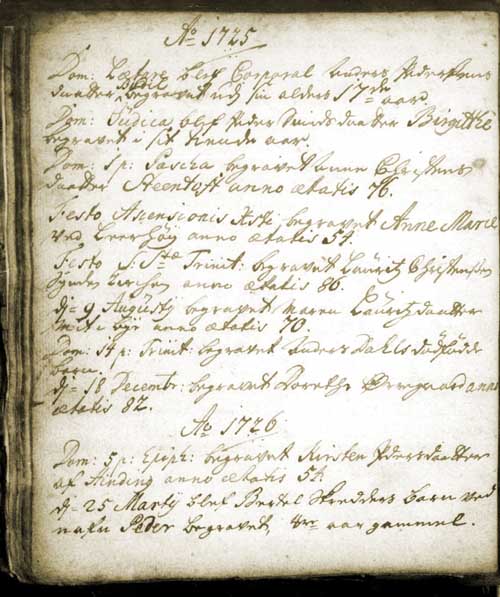 Ao 1725
Dom: Lætare blef Corporal Anders Pedersens
daatter Bodil begravet udj sin alders 17de aar
Dom: Judica blef Peder Smidsdaatter Birgithe
begravet i sit tiende aar.
Dom: 5 p: Pascha begravet Anne Christens
daatter Steentoft anno ætatis 76.
Festo Ascensionis Xsti begravet Anne Marie
ved Leerhøy anno ætatis 54.
Festo S: Stæ Trinit: begravet Lauritz Christensen
anno ætatis 86.
dj 9 Augusty begravet Maren Lauritzdaatter
anno ætatis 70.
Dom: 14 p: Trinit: begravet Anders Dahls dødfødde
barn.
dj 18 Decembr: begravet Dorethe Ørregaard anno
ætatis 82.
Ao 1726
Dom: 5 p: Epiph: begravet Kirsten Pedersdaatter
af Hinding anno ætatis 54.
dj 25 Marty blef Bertel Skredders barn ved
nafn Peder begravet, aar gammel.